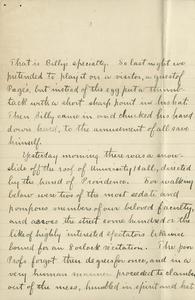 That is Billy's specialty. So last night we
pretended to play it on a visitor, a guest of
Page's, but instead of the egg put a thumb-
tack with a short sharp point in his hat.
Then Billy came in and chucked his hand
down hard, to the amusement of all save
himself.
Yesterday morning there was a snow-
slide off the roof of University Hall, directed
by the hand of Providence. For walking
below were two of the most sedate and
pompous members of our beloved faculty,
and across the street some hundred or the
like of highly interested spectators likewise
bound for an 8 o'clock recitation. The poor
Profs forgot their degrees for once, and in a
very human manner proceeded to clamber
out of the mess, humbled in spirit and hat